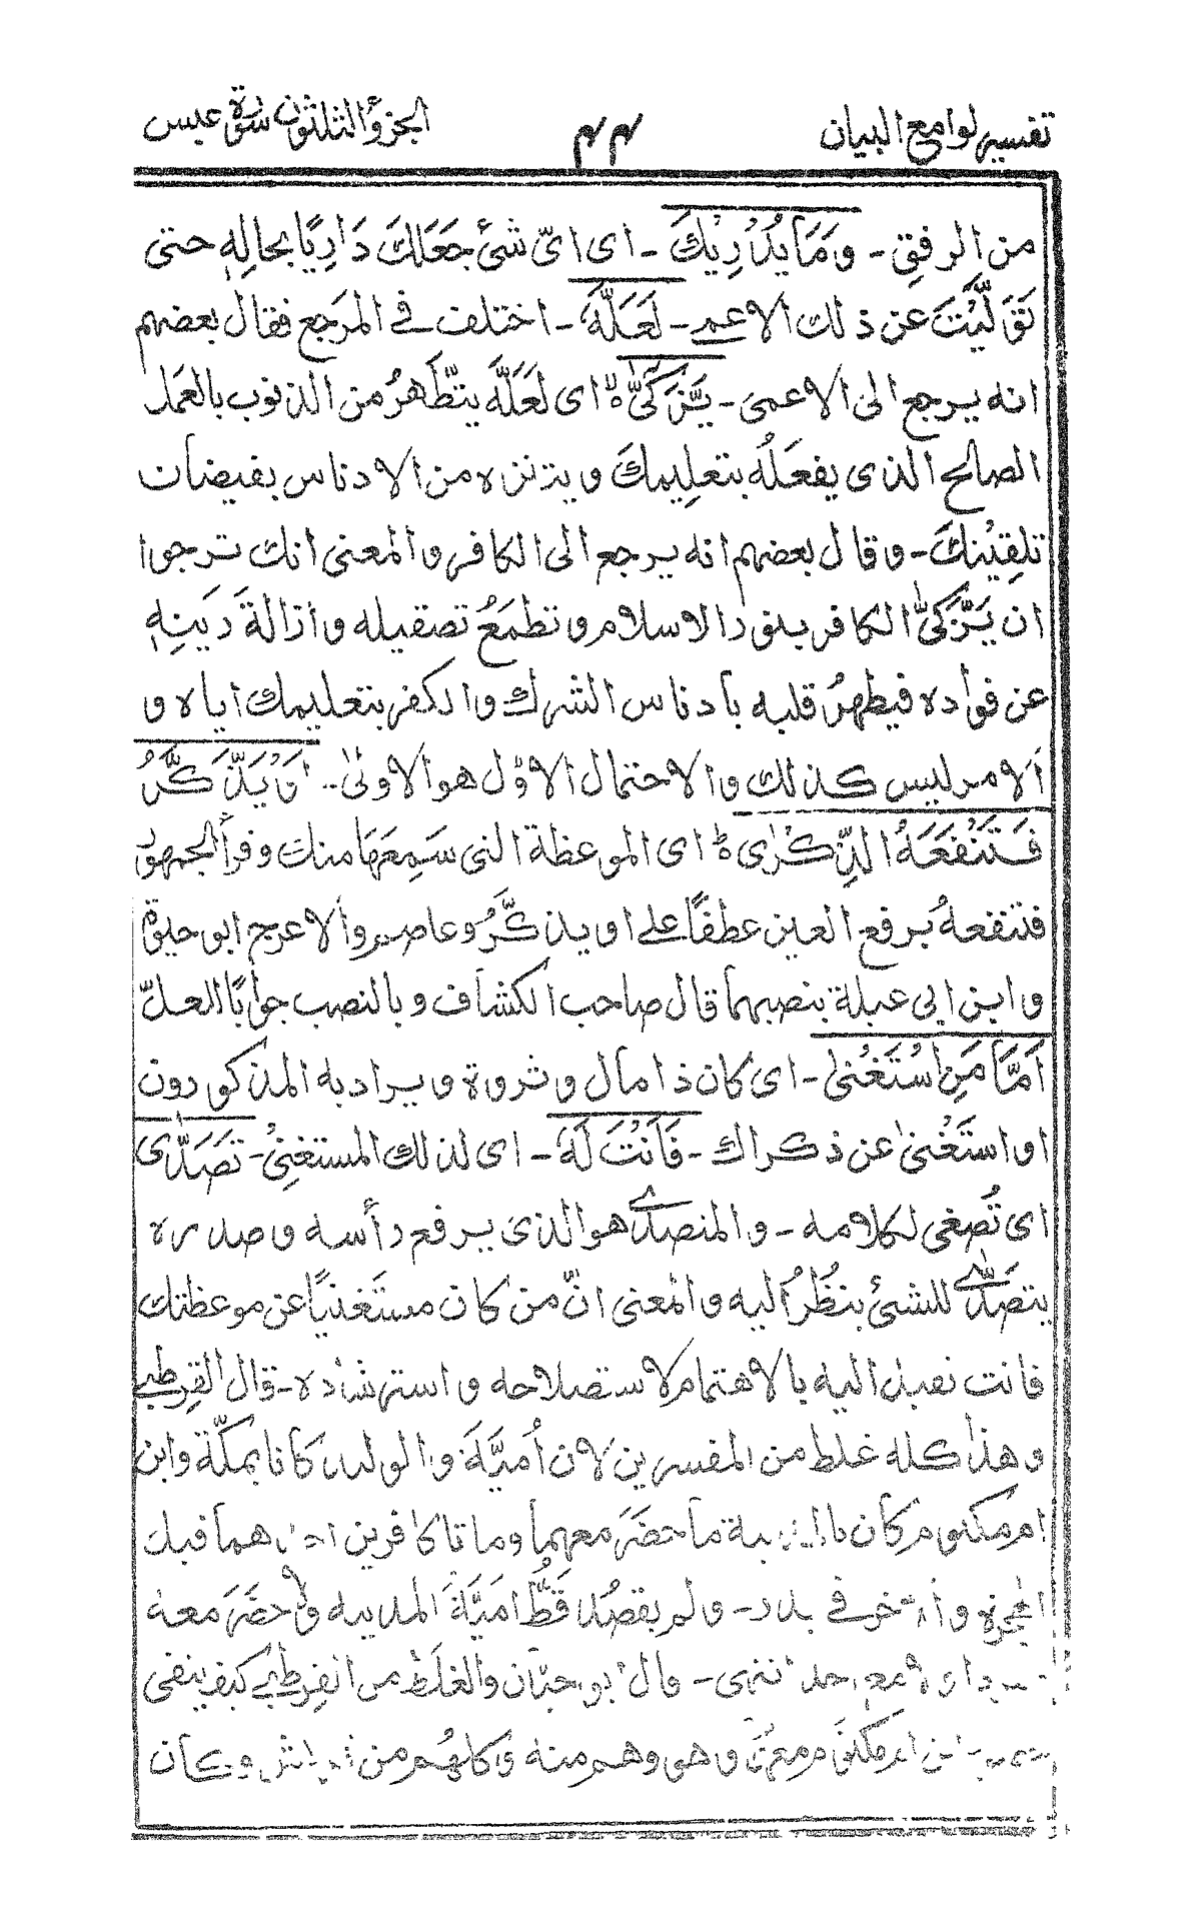 تفسير لوامع البيان ٤٤ الجزؤ الثلثون سورة عبس
من الرفق - وَمَا يُدْرِيْكَ - اى اىّ شئ جَعَلَكَ دَارِيًا بحالِهٖ حتى
تَوَلَّيْتَ عن ذلك الاعمى - لَعَلَّهٗ - اختلف فى المرجع فقال بعضهم
انه يرجع الى الاعمىٰ - يَزَّكّٰىٓ ه اى لَعَلَّهٗ يتّطَهّرُ من الذنوب بالعَمل
الصالح الذى يفعلُه بتعلِيمِكَ ويتنزه من الادناس بفيضان
تلقِيْنِكَ - وقال بعضهم انه يرجع الى الكافر والمعنى انك ترجوا
ان يَزَّكّٰى الكافر بنور الاسلام وتطمَعُ تصقيله وازالةَ رَينِهٖ
عن فواده فيطهرُ قلبه بادناس الشرك والكفر بتعليمك اياه و
الامر ليس كذلك والاحتمال الاوّل هو الاولىٰ - اَوْ يَذَّكَّرُ
فَتَنْفَعَهُ الذِّكْرٰى ه اى الموعظة التى سَمِعَهَا منك وقرأ الجمهور
فتنفعهُ برفع العين عطفًا على او يذكَّرُ وعاصم والاعرج ابو حيوة
وابن ابى عبلة بنصبهما قال صاحب الكشاف وبالنصب جوابًا لعلّ
اَمَّا مَنِ اسْتَغْنٰى - اى كان ذا مال وثروة ويراد به المذكورون
او استَغْنىٰ عن ذكراك - فَاَنْتَ لَهٗ - اى لذلك المستغنِىْ - تَصَدّٰى
اى تُصغى لكلامه - والمتصدّى هو الذى يرفع رأسه وصدره
يتصَدّٰى للشئ ينظُرُ اليه والمعنى انّ من كان مستَغنيًا عن موعظتك
فانت تقبل اليه بالاهتمام لاستصلاحه واسترشاده - قال القرطبى
وهذا كله غلط من المفسرين لان اُميَّةَ والوليد كَانا بمكّة وابن
ام مكتوم كان بالمدينة ما حَضَرَ معهما وماتا كافرين احدهما قبل
الهجرة والآخر فى بدر - ولم يقصُد قَطُّ اميَّةَ المدينه ولا حضَرَ معه
مع احد انتهى - قال ابو حيّان والغلَط من القرطبى كيف ينفى
ابن ام مكتوم معهم وهو وهم منه وكلهُم من قريش وكان